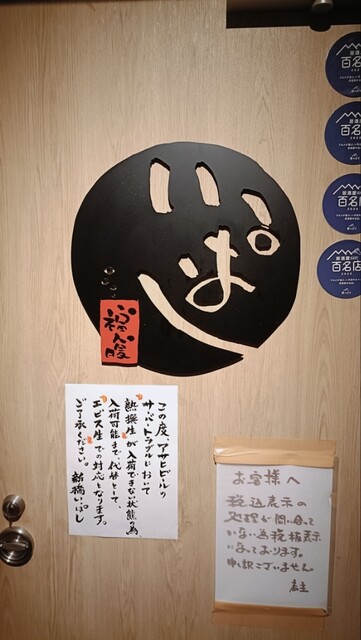 いぱし
この度、アサヒビールの
サバートラブルにおいて
熟撰生が入荷できない状態の為、
入荷可能まで、代替として、
エビス生での対応となります。
ご了承ください。 新橋いぱし
お客様へ
税込表示の
処理が間に合って
いない為税抜表示
になっております。
申し訳ございません。
店主
居酒屋
百名店
居酒屋
百名店
居酒屋EAST
百名店
居酒屋EAST
百名店